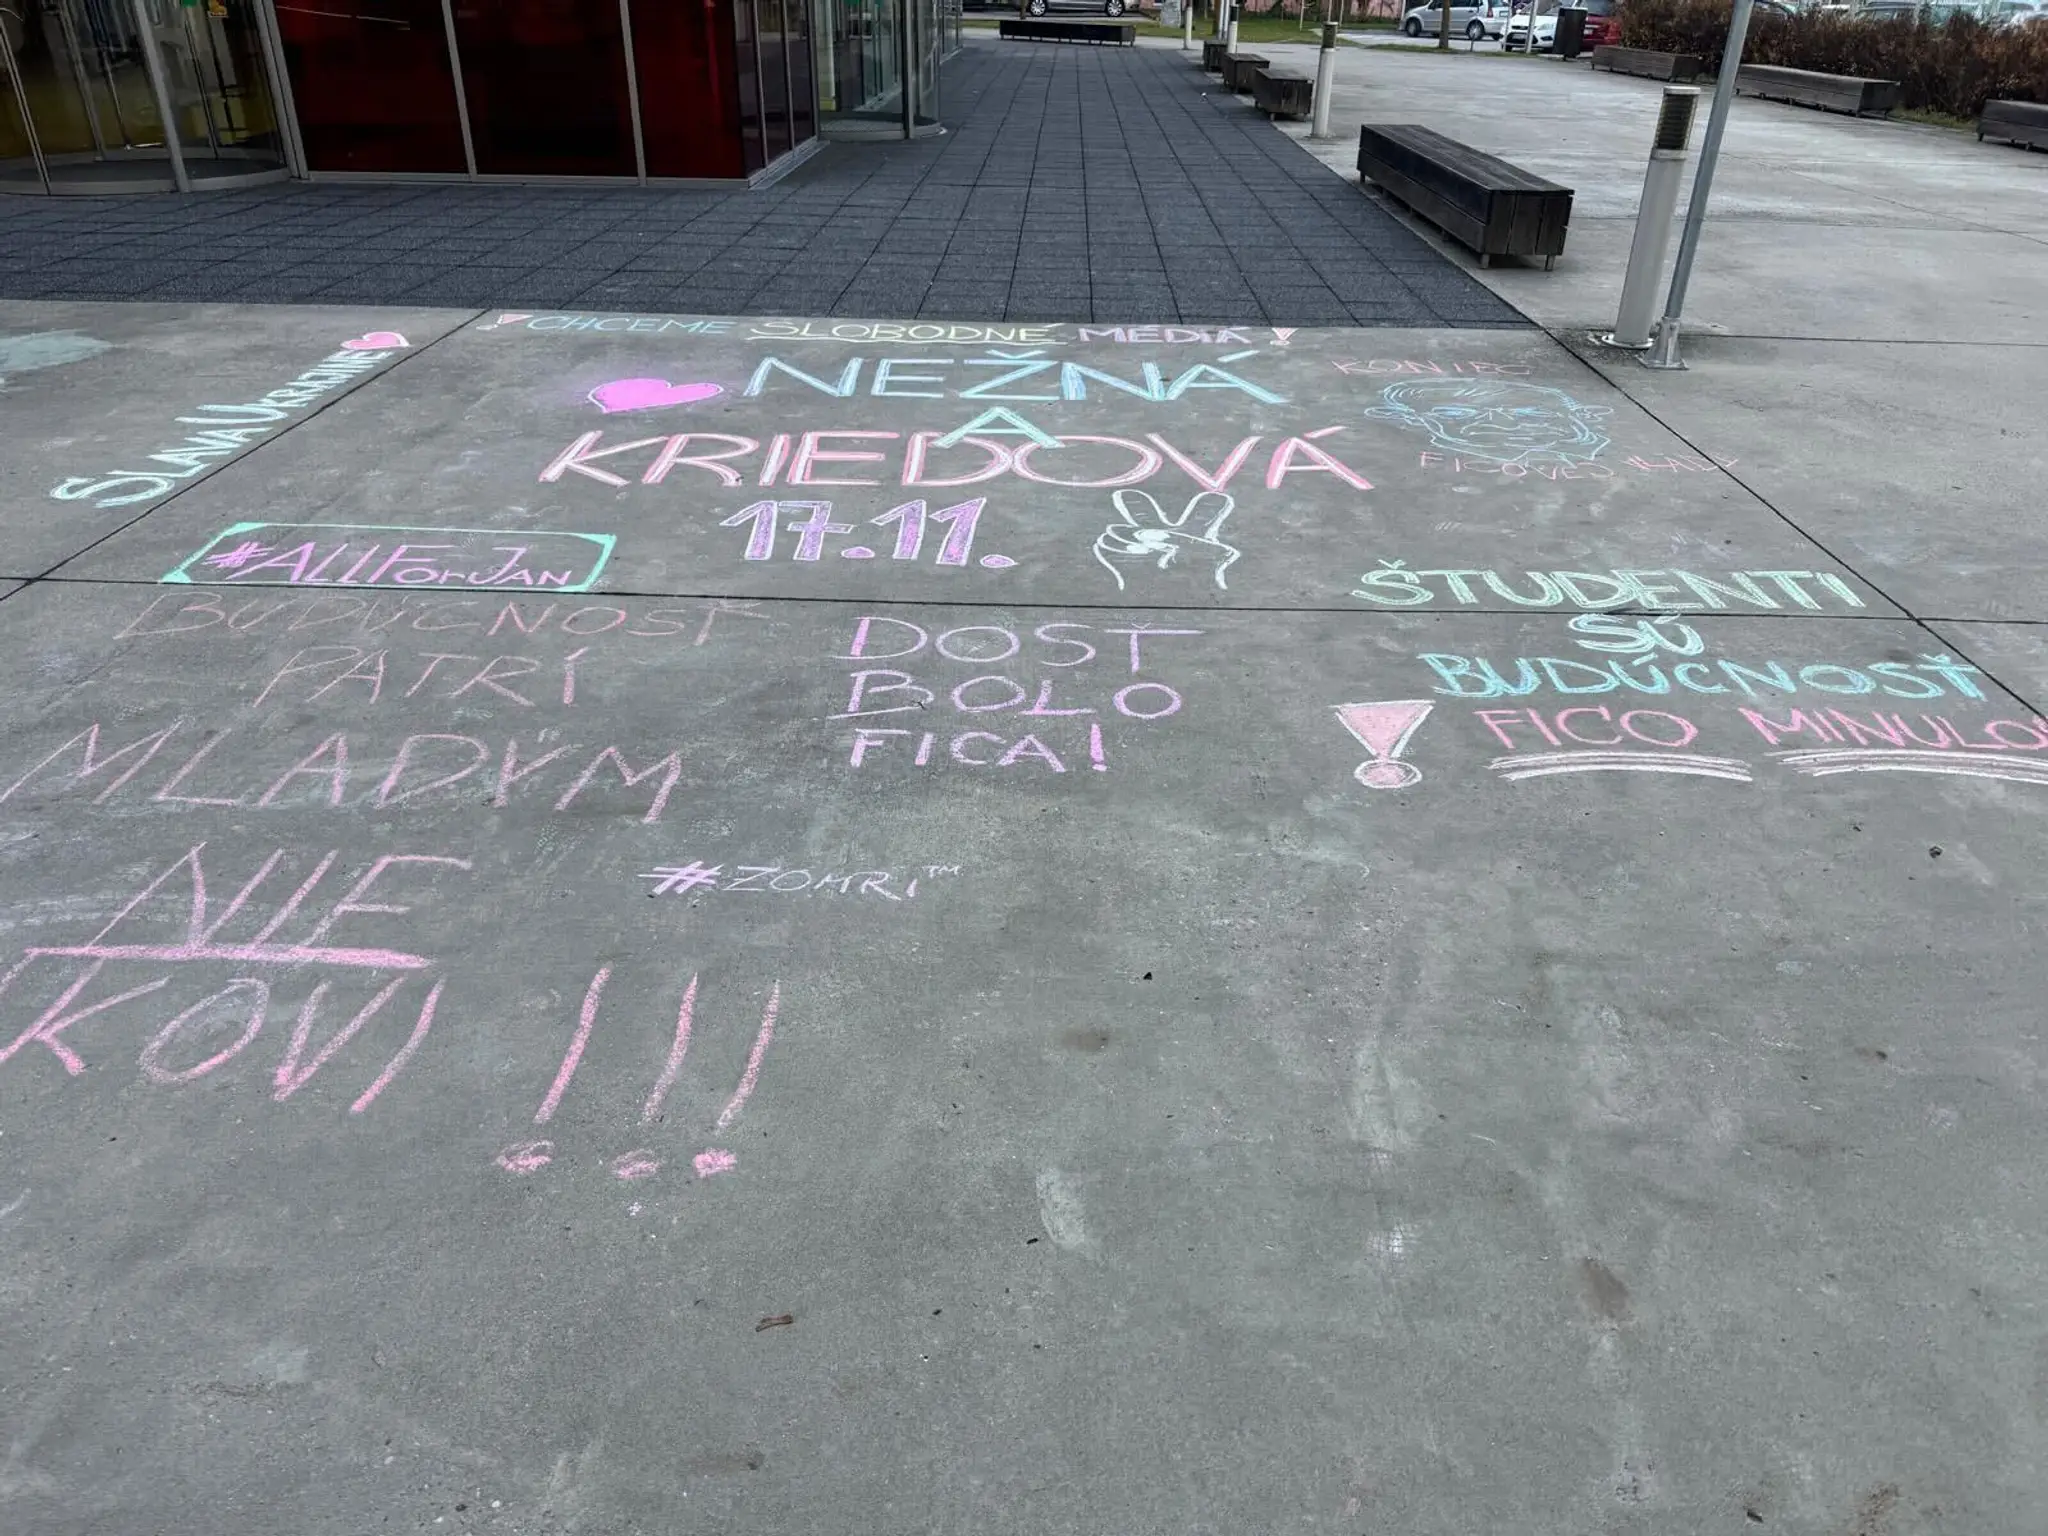 ! CHCEME SLOBODNÉ MÉDIÁ !
SLAVA UKRAJINE
NEŽNÁ
A
KRIEDOVÁ
17.11.
KONIEC
FICOVEJ VLÁDY
#ALLFORJAN
BUDÚCNOSŤ
PATRÍ
MLADÝM
NIE
KOVI !!!
DOSŤ
BOLO
FICA!
#ZOMRI™
ŠTUDENTI
SÚ
BUDÚCNOSŤ
! FICO MINULOS